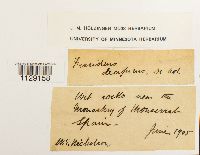 J. M. HOLZINGER MOSS HERBARIUM
UNIVERSITY OF MINNESOTA HERBARIUM
1129158
Fissidens
decipiens, de Not
Wet rocks near the
Monastery of Monserrat
Spain.
June 1905
W. E. Nicholson